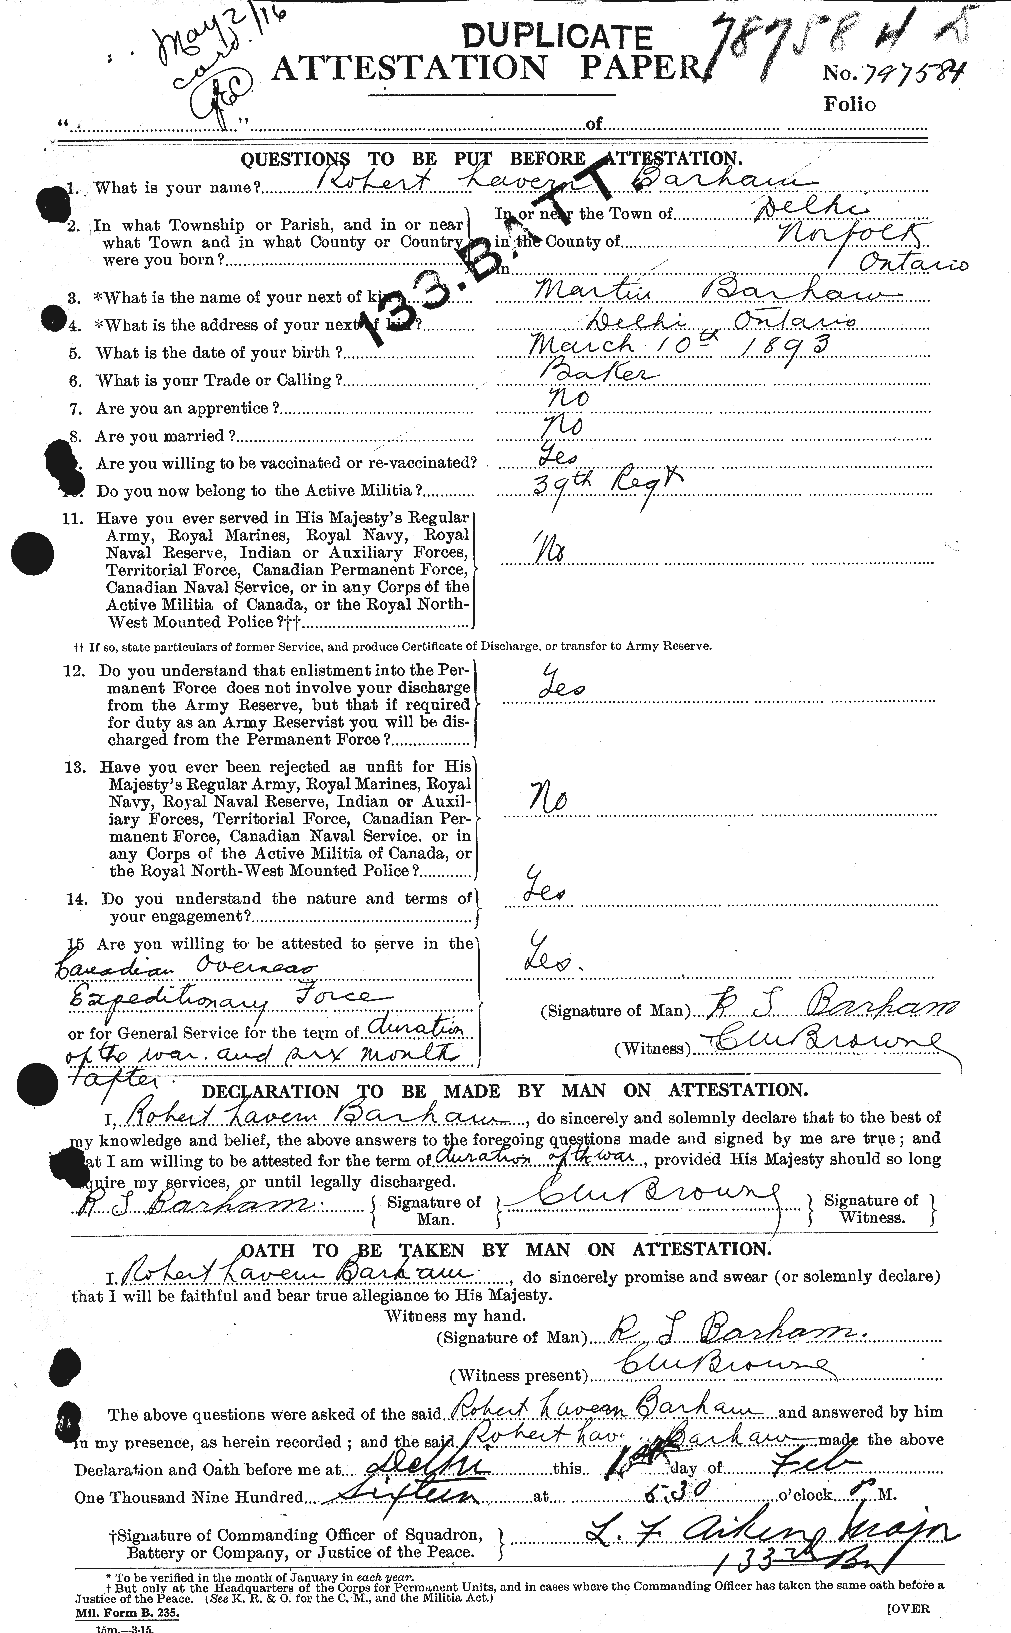 May 2/16
card.
DUPLICATE
78758 4
ATTESTATION PAPER.
No. 797584
Folio
" " of
QUESTIONS TO BE PUT BEFORE ATTESTATION.
133.BATT.
1. What is your name? Robert Lavern Barham
2. In what Township or Parish, and in or near In or near the Town of Delhi
what Town and in what County or Country in the County of Norfolk
were you born? in Ontario
3. *What is the name of your next of kin? Martin Barham
4. *What is the address of your next of kin? Delhi Ontario
5. What is the date of your birth? March 10th 1893
6. What is your Trade or Calling? Baker
7. Are you an apprentice? No
8. Are you married? No
Are you willing to be vaccinated or re-vaccinated? Yes
Do you now belong to the Active Militia? 39th Regt
11. Have you ever served in His Majesty's Regular
Army, Royal Marines, Royal Navy, Royal
Naval Reserve, Indian or Auxiliary Forces, No
Territorial Force, Canadian Permanent Force,
Canadian Naval Service, or in any Corps of the
Active Militia of Canada, or the Royal North-
West Mounted Police?††
†† If so, state particulars of former Service, and produce Certificate of Discharge, or transfer to Army Reserve.
12. Do you understand that enlistment into the Per-
manent Force does not involve your discharge Yes
from the Army Reserve, but that if required
for duty as an Army Reservist you will be dis-
charged from the Permanent Force?
13. Have you ever been rejected as unfit for His
Majesty's Regular Army, Royal Marines, Royal
Navy, Royal Naval Reserve, Indian or Auxil- No
iary Forces, Territorial Force, Canadian Per-
manent Force, Canadian Naval Service. or in
any Corps of the Active Militia of Canada, or
the Royal North-West Mounted Police?
14. Do you understand the nature and terms of Yes
your engagement?
15 Are you willing to be attested to serve in the
Canadian Overseas Yes.
Expeditionary Force
(Signature of Man) R L Barham
or for General Service for the term of duration
of the war. and six month (Witness) CW Browne
after.
DECLARATION TO BE MADE BY MAN ON ATTESTATION.
I, Robert Lavern Barham, do sincerely and solemnly declare that to the best of
my knowledge and belief, the above answers to the foregoing questions made and signed by me are true; and
at I am willing to be attested for the term of duration of th war, provided His Majesty should so long
quire my services, or until legally discharged.
R L Barham. { Signature of Man. } CW Browne { Signature of Witness. }
OATH TO BE TAKEN BY MAN ON ATTESTATION.
I, Robert Lavern Barham, do sincerely promise and swear (or solemnly declare)
that I will be faithful and bear true allegiance to His Majesty.
Witness my hand.
(Signature of Man) R L Barham.
(Witness present) CW Browne
The above questions were asked of the said Robert Lavern Barham and answered by him
in my presence, as herein recorded; and the said Robert Lav Barham made the above
Declaration and Oath before me at Delhi this day of Feb
One Thousand Nine Hundred Sixteen at 5.30 o'clock P. M.
†Signature of Commanding Officer of Squadron, L. F. Aiken Major
Battery or Company, or Justice of the Peace. 133rd Bn
* To be verified in the month of January in each year.
† But only at the Headquarters of the Corps for Permanent Units, and in cases where the Commanding Officer has taken the same oath before a
Justice of the Peace. (See K. R. & O. for the C. M., and the Militia Act.)
Mil. Form B. 235.
[OVER
15m.—3-15.